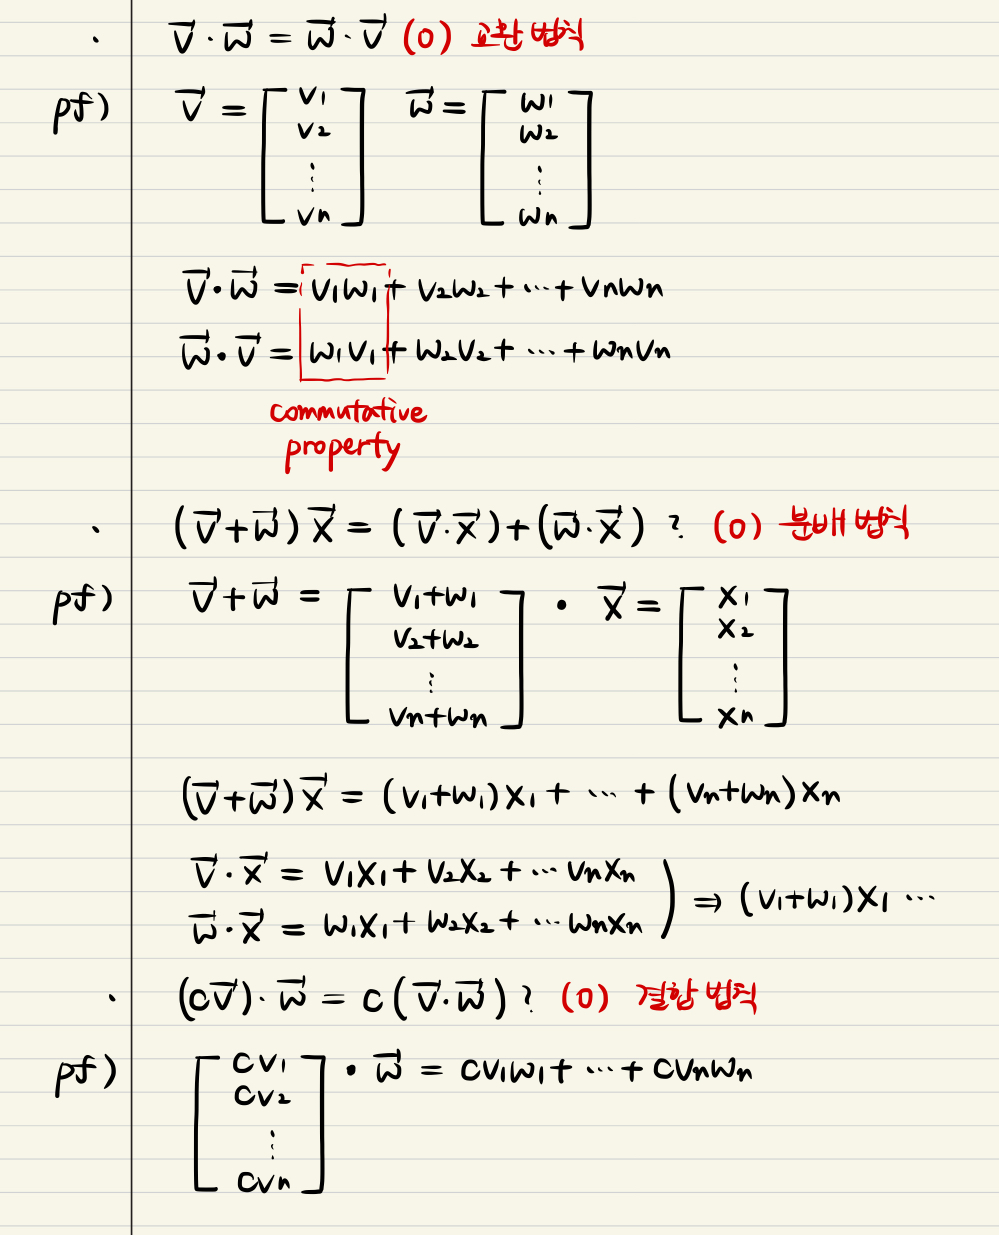 · v⃗ · w⃗ = w⃗ · v⃗ (o) 교환 법칙
pf) v⃗ = [ v₁ v₂ ⋮ vn ] w⃗ = [ w₁ w₂ ⋮ wn ]
v⃗ · w⃗ = v₁w₁ + v₂w₂ + ⋯ + vnwn
w⃗ · v⃗ = w₁v₁ + w₂v₂ + ⋯ + wnvn
commutative
property
· (v⃗ + w⃗) x⃗ = (v⃗ · x⃗) + (w⃗ · x⃗) ? (o) 분배 법칙
pf) v⃗ + w⃗ = [ v₁+w₁ v₂+w₂ ⋮ vn+wn ] · x⃗ = [ x₁ x₂ ⋮ xn ]
(v⃗ + w⃗) x⃗ = (v₁+w₁)x₁ + ⋯ + (vn+wn)xn
v⃗ · x⃗ = v₁x₁ + v₂x₂ + ⋯ vnxn
w⃗ · x⃗ = w₁x₁ + w₂x₂ + ⋯ wnxn ) ⇒ (v₁+w₁)x₁ ⋯
· (cv⃗) · w⃗ = c (v⃗ · w⃗) ? (o) 결합 법칙
pf) [ cv₁ cv₂ ⋮ cvn ] · w⃗ = cv₁w₁ + ⋯ + cvnwn